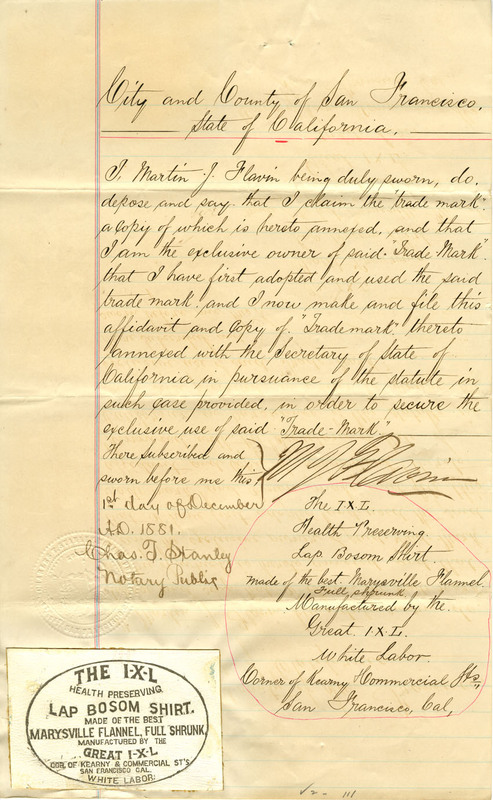 City and County of San Francisco.
State of California.
I, Martin J. Flavin being duly sworn, do.
depose and say that I claim the "trade mark".
a copy of which is hereto annexed, and that
I am the exclusive owner of said "Trade Mark".
that I have first adopted and used the said
trade mark. and I now make and file this
affidavit and copy of "Trademark" thereto
annexed with the Secretary of State of
California in pursuance of the statute in
such case provided, in order to secure the
exclusive use of said "Trade-Mark"
There subscribed and
sworn before me this
1st day of December
A.D. 1881.
Chas. T. Stanley
Notary Public
M J Flavin
The I.X.L.
Health Preserving.
Lap Bosom Shirt
made of the best. Marysville Flannel.
Full shrunk
Manufactured by the.
Great. I.X.L.
White Labor.
Corner of Kearny & Commercial Sts,
San Francisco, Cal,
THE I-X-L
HEALTH PRESERVING
LAP BOSOM SHIRT.
MADE OF THE BEST
MARYSVILLE FLANNEL, FULL SHRUNK
MANUFACTURED BY THE
GREAT I-X-L
COR. OF KEARNY & COMMERCIAL ST'S
SAN FRANCISCO CAL.
WHITE LABOR.